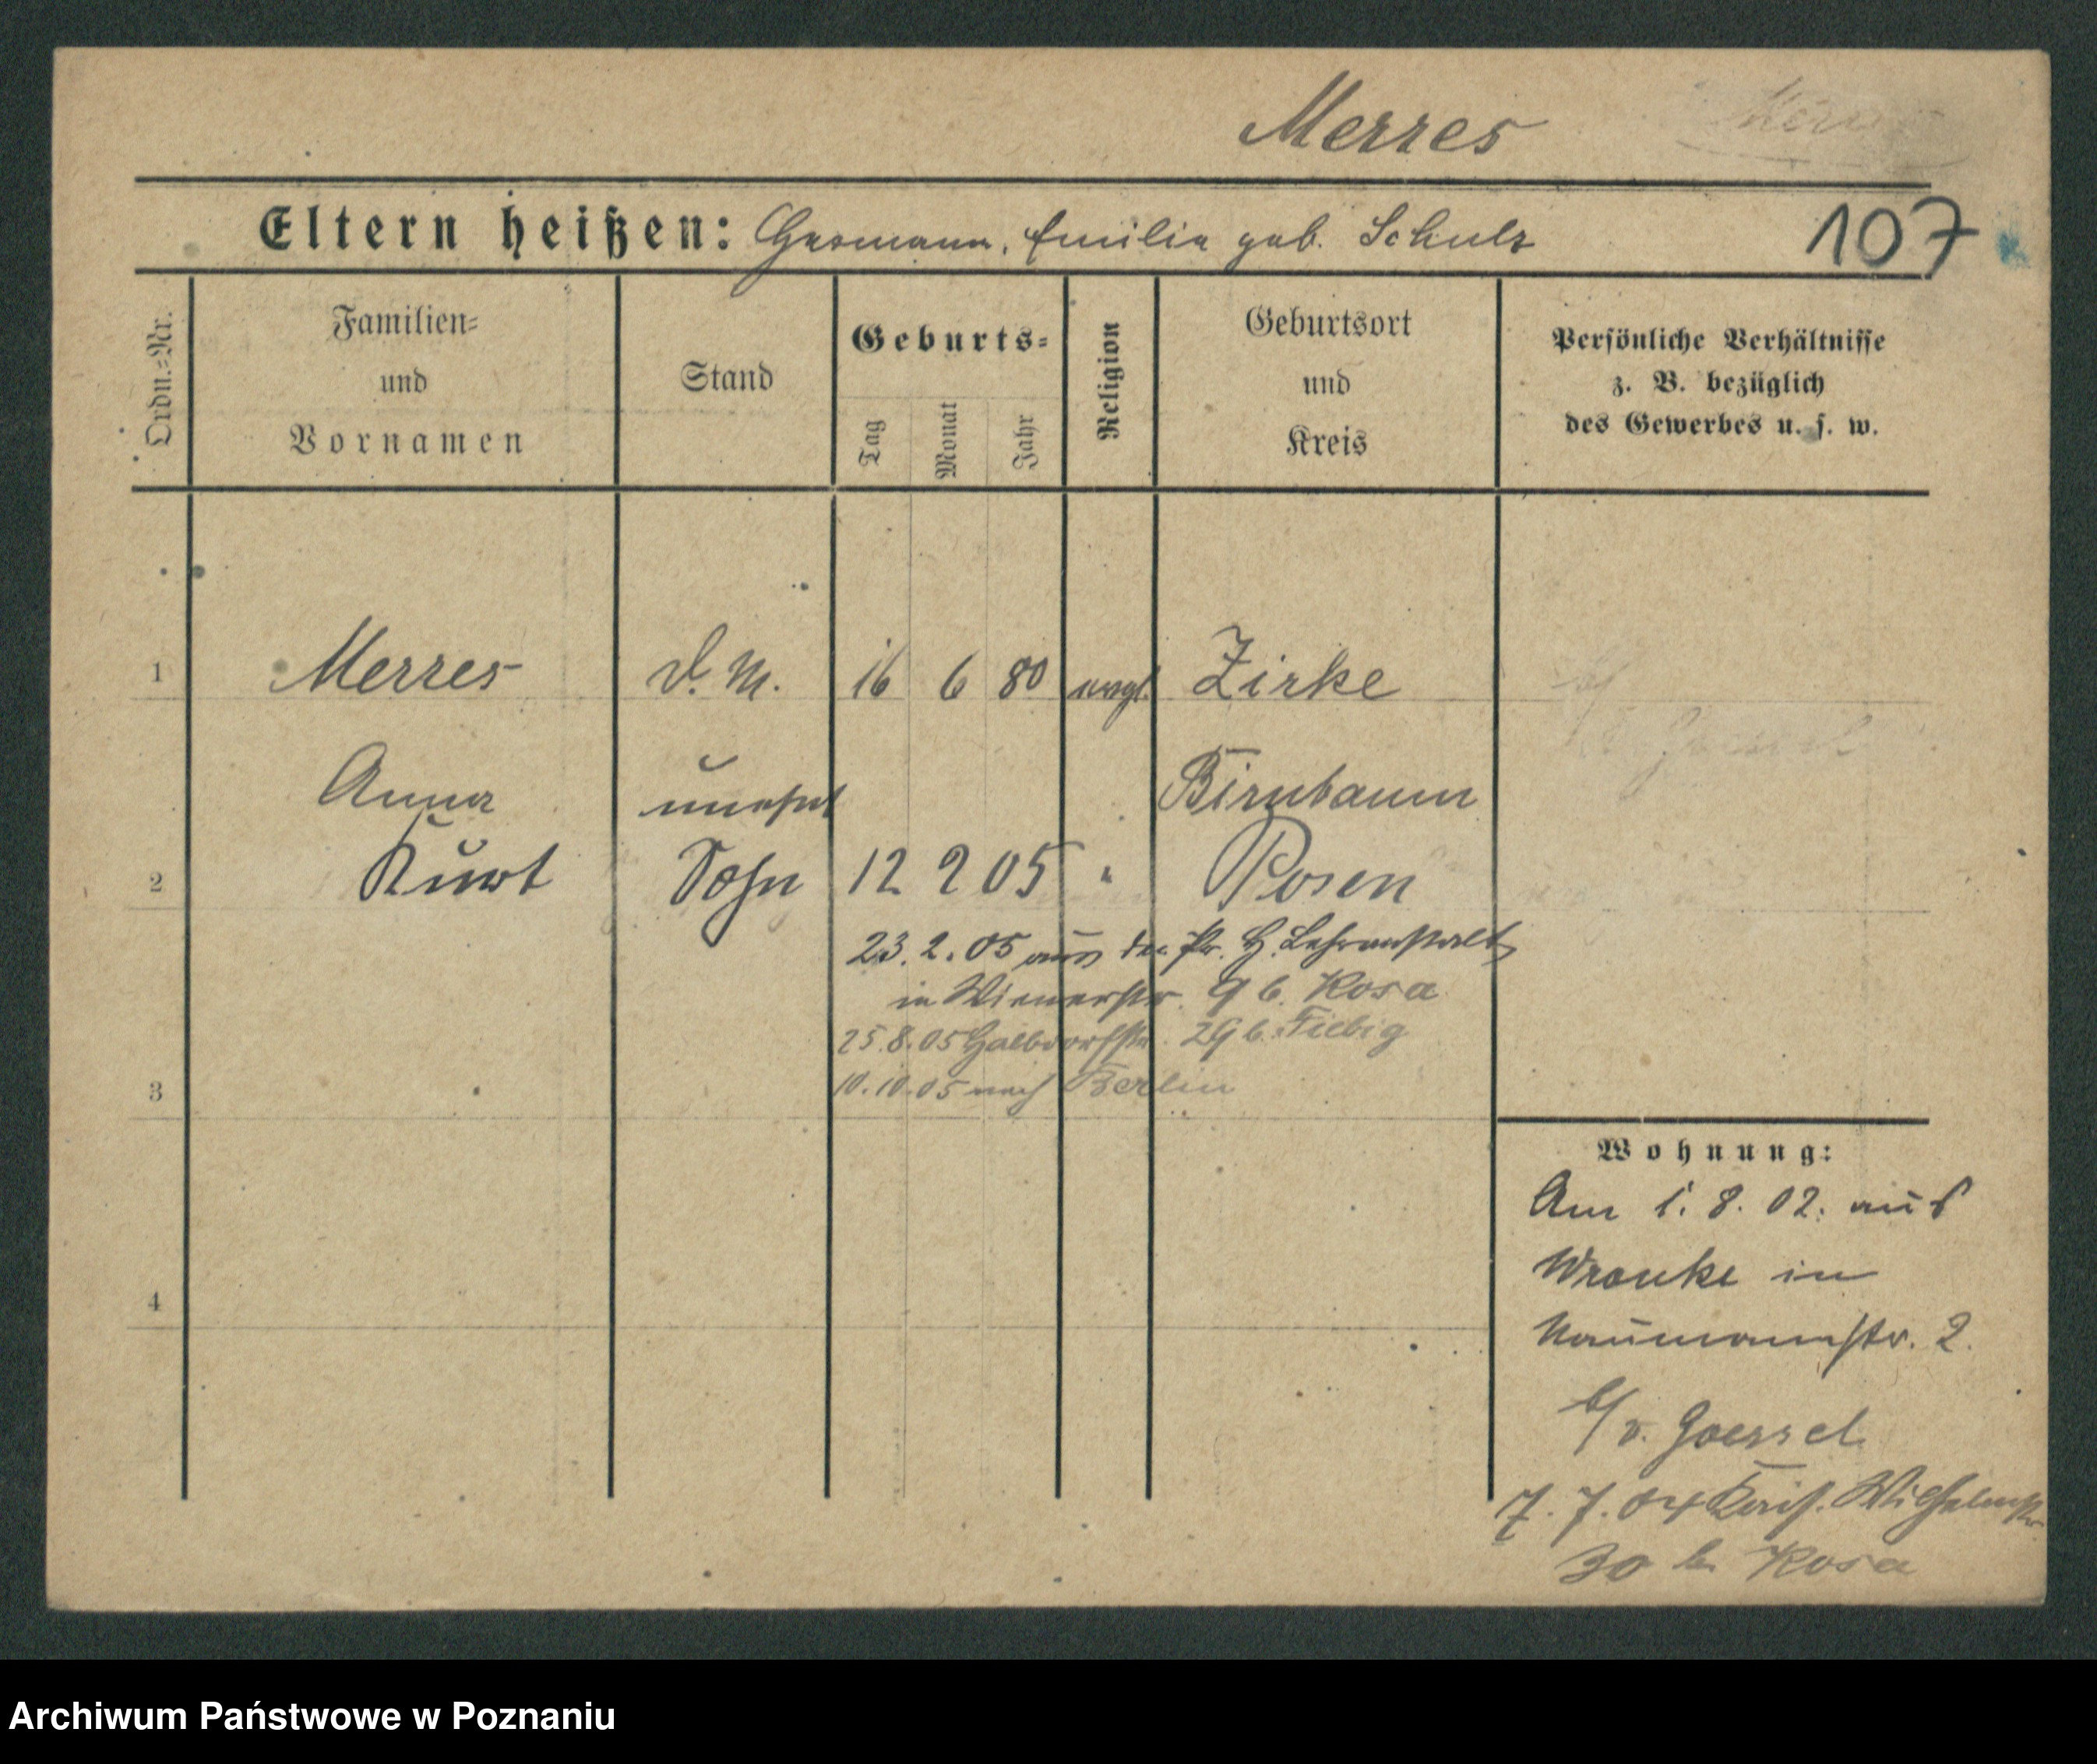 Merres
107
Eltern heißen: Hermann, Emilie geb. Schulz
Ordn.=Nr.
Familien=
und
Vornamen
Stand
Geburts=
Tag
Monat
Jahr
Religion
Geburtsort
und
Kreis
Persönliche Verhältnisse
z. B. bezüglich
des Gewerbes u. s. w.
1 Merres D. M. 16 6 80 evgl. Zirke
Anna unehel Birnbaum
2 Kurt Sohn 12 2 05 " Posen
23. 2. 05 aus der Pr. H. Lehranstalt
in Wienerstr. 9 b. Rosa
25. 8. 05 Halbdorfstr. 29 b. Fiebig
3 10. 10. 05 nach Berlin
4
Wohnung:
Am 1. 8. 02. aus
Wronke in
Naumannstr. 2.
b/ v. Goessel
7. 7. 04 Kais. Wilhelmstr
30 b. Rosa
Archiwum Państwowe w Poznaniu